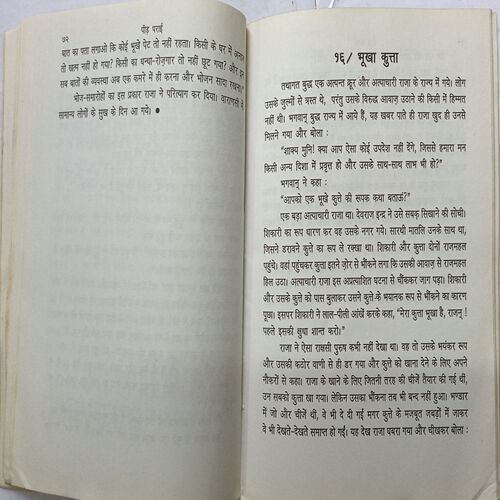 ७२
पीड़ पराई
बात का पता लगाओ कि कोई भूखे पेट तो नहीं रहता। किसी के घर में अनाज
तो खत्म नहीं हो गया? किसी का धन्धा-रोज़गार तो नहीं छूट गया? और इन
सब बातों की व्यवस्था अब एक कमरे में ही करना और भोजन साथ रखना।"
भोज-समारोहों का इस प्रकार राजा ने परित्याग कर दिया। वाराणसी के
सामान्य लोगों के सुख के दिन आ गये। ●
१६/ भूखा कुत्ता
तथागत बुद्ध एक अत्यन्त क्रूर और अत्याचारी राजा के राज्य में गये। लोग
उसके जुल्मों से त्रस्त थे, परंतु उसके विरुद्ध आवाज़ उठाने की किसी में हिम्मत
नहीं थी। भगवान् बुद्ध राज्य में आये हैं, यह खबर पाते ही राजा खुद ही उनसे
मिलने गया और बोला :
"शाक्य मुनि! क्या आप ऐसा कोई उपदेश नहीं देंगे, जिससे हमारा मन
किसी अन्य दिशा में प्रवृत्त हो और उसके साथ-साथ लाभ भी हो?"
भगवान् ने कहा :
"आपको एक भूखे कुत्ते की रूपक कथा बताऊं?"
एक बड़ा अत्याचारी राजा था। देवराज इन्द्र ने उसे सबक़ सिखाने की सोची।
शिकारी का रूप धारण कर वह उसके नगर गये। सारथी मातलि उनके साथ था,
जिसने डरावने कुत्ते का रूप ले रक्खा था। शिकारी और कुत्ता दोनों राजमहल
पहुंचे। वहां पहुंचकर कुत्ता इतने ज़ोर से भौंकने लगा कि उसकी आवाज़ से राजमहल
हिल उठा। अत्याचारी राजा इस अप्रत्याशित घटना से चौंककर जाग पड़ा। शिकारी
और उसके कुत्ते को पास बुलाकर उसने कुत्ते के भयानक रूप से भौंकने का कारण
पूछा। इसपर शिकारी ने लाल-पीली आंखें करके कहा, "मेरा कुत्ता भूखा है, राजन् !
पहले इसकी क्षुधा शान्त करो।"
राजा ने ऐसा राक्षसी पुरुष कभी नहीं देखा था। वह तो उसके भयंकर रूप
और उसकी कठोर वाणी से ही डर गया और कुत्ते को खाना देने के लिए अपने
नौकरों से कहा। राजा के खाने के लिए जितनी तरह की चीजें तैयार की गई थीं,
उन सबको कुत्ता खा गया। लेकिन उसका भौंकना तब भी बन्द नहीं हुआ। भण्डार
में जो और चीजें थीं, वे भी दे दी गई मगर कुत्ते के मजबूत जबड़ों में जाकर
वे भी देखते-देखते समाप्त हो गईं। यह देख राजा घबरा गया और चीखकर बोला :